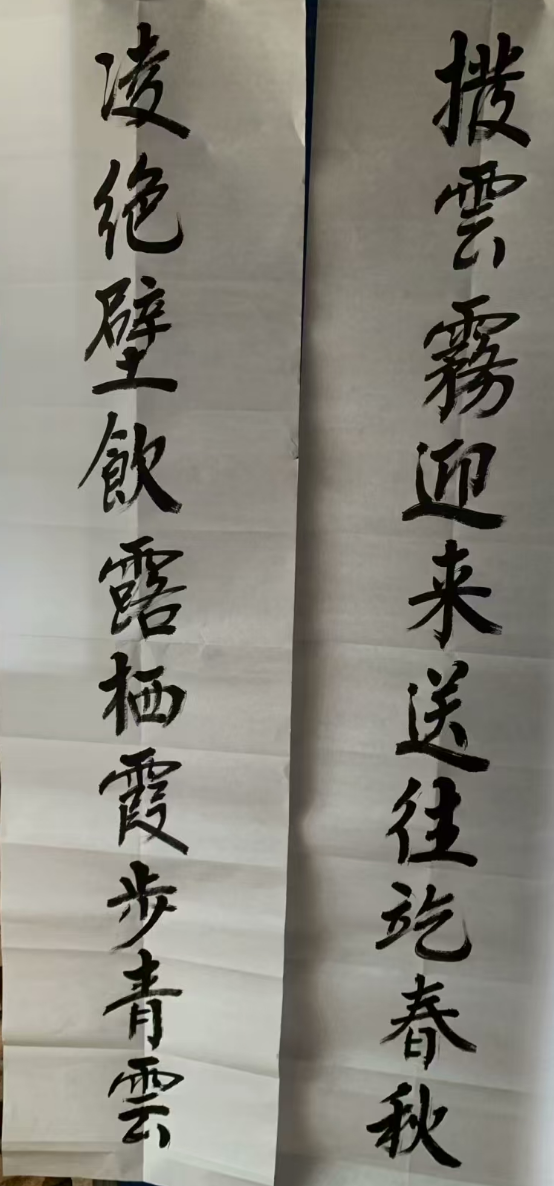 拨雲霧迎来送往竞春秋
凌绝壁飲露栖霞步青雲